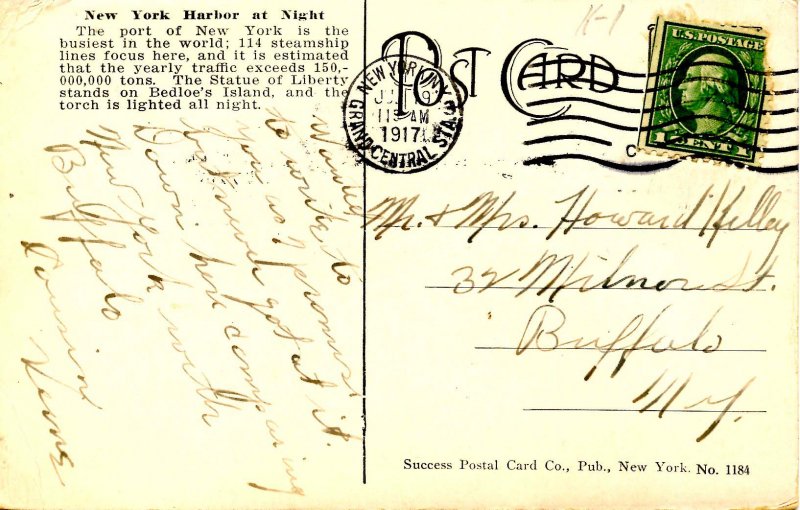 New York Harbor at Night
The port of New York is the
busiest in the world; 114 steamship
lines focus here, and it is estimated
that the yearly traffic exceeds 150,-
000,000 tons. The Statue of Liberty
stands on Bedloe's Island, and the
torch is lighted all night.
Wanted
to write to
you as I promised
but never got at it.
Down here comparing
New York with
Buffalo
Cousin
POST CARD
NEW YORK, N.Y.
11 AM
1917
GRAND CENTRAL STA.
U.S. POSTAGE
1 CENT 1
K-1
Mr. & Mrs. Howard Kelley
32 Milnor St.
Buffalo
N.Y.
Success Postal Card Co., Pub., New York. No. 1184